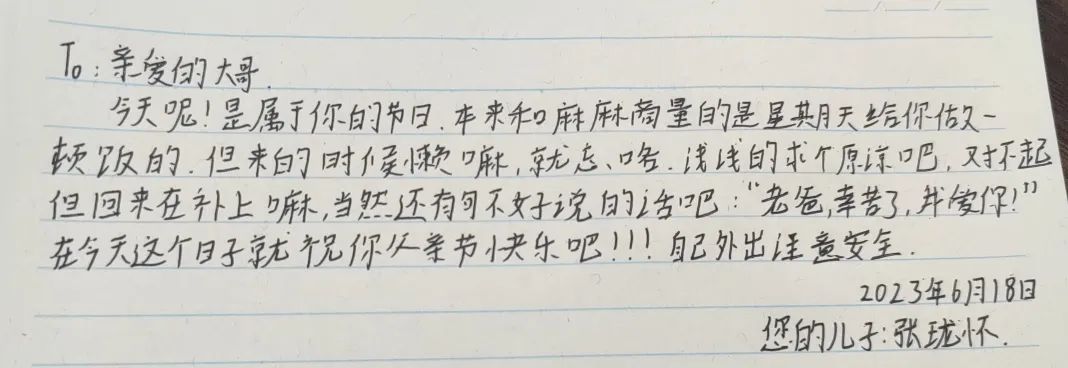 To：亲爱的大哥.
今天呢！是属于你的节日.本来和麻麻商量的是星期天给你做一
顿饭的.但来的时候懒嘛,就忘、咯.浅浅的求个原谅吧,对不起
但回来在补上嘛,当然还有句不好说的话吧："老爸,幸苦了,我爱你！"
在今天这个日子就祝你父亲节快乐吧！！！自己外出注意安全.
2023年6月18日
您的儿子:张珑怀.